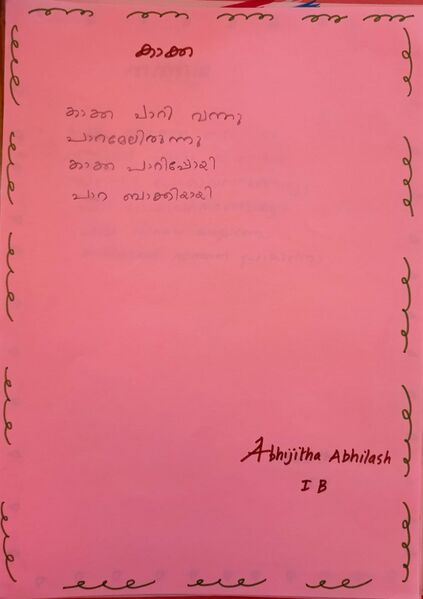 കാക്ക
കാക്ക പാറി വന്നു
പാറമേലിരുന്നു
കാക്ക പാറിപ്പോയി
പാറ ബാക്കിയായി
Abhijitha Abhilash
I B